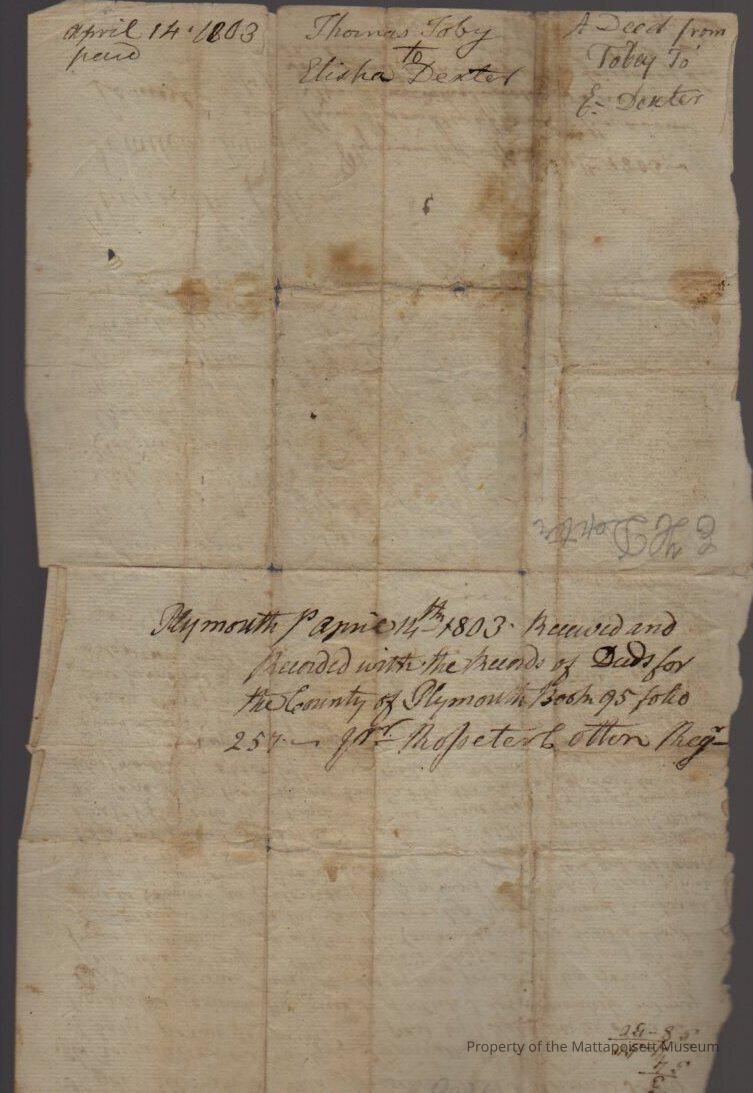 april 14. 1803
paid
Thomas Toby
to
Elisha Dexter
A Deed from
Tobey To
E- Dexter
E H Dexter
Plymouth Ss April 14th 1803. Received and
Recorded with the Records of Deeds for
the County of Plymouth Book 95 folio
257.
Rosseter Cotton Regr
Property of the Mattapoisett Museum